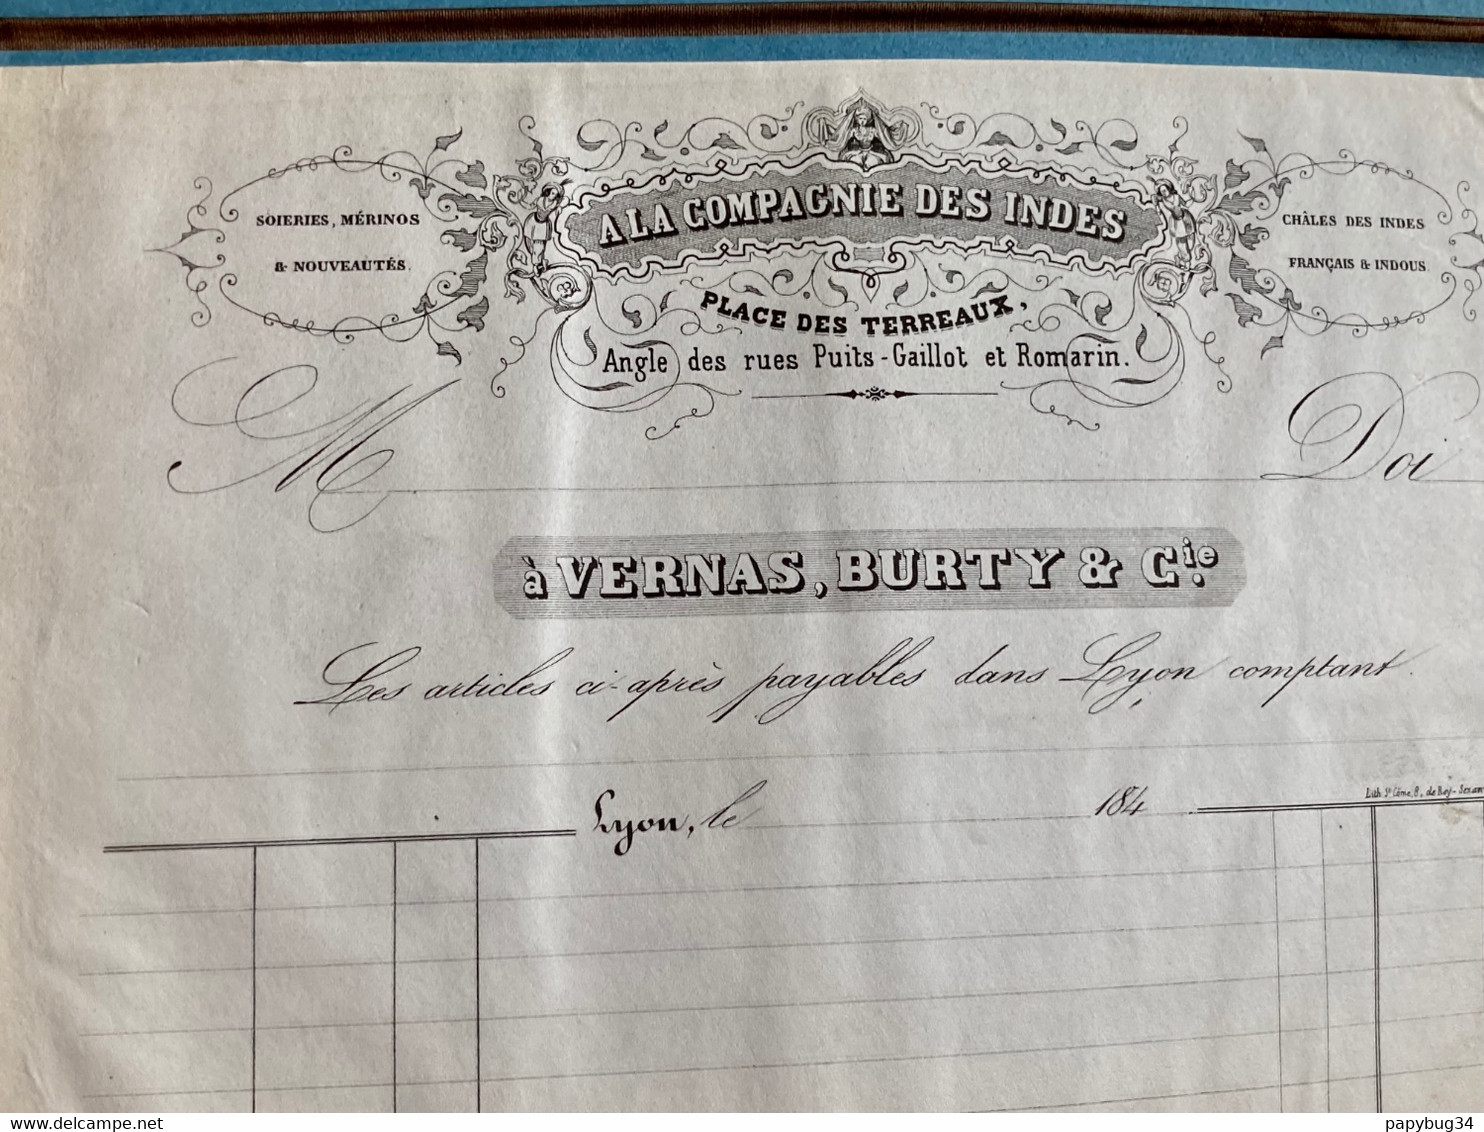 SOIERIES, MÉRINOS
& NOUVEAUTÉS.
A LA COMPAGNIE DES INDES
CHÂLES DES INDES
FRANÇAIS & INDOUS.
PLACE DES TERREAUX,
Angle des rues Puits-Gaillot et Romarin.
M Doi
à VERNAS, BURTY & Cie.
Les articles ci-après payables dans Lyon comptant.
Lith. St Côme, 8, de
Lyon, le 184
delcampe.net
papybug34